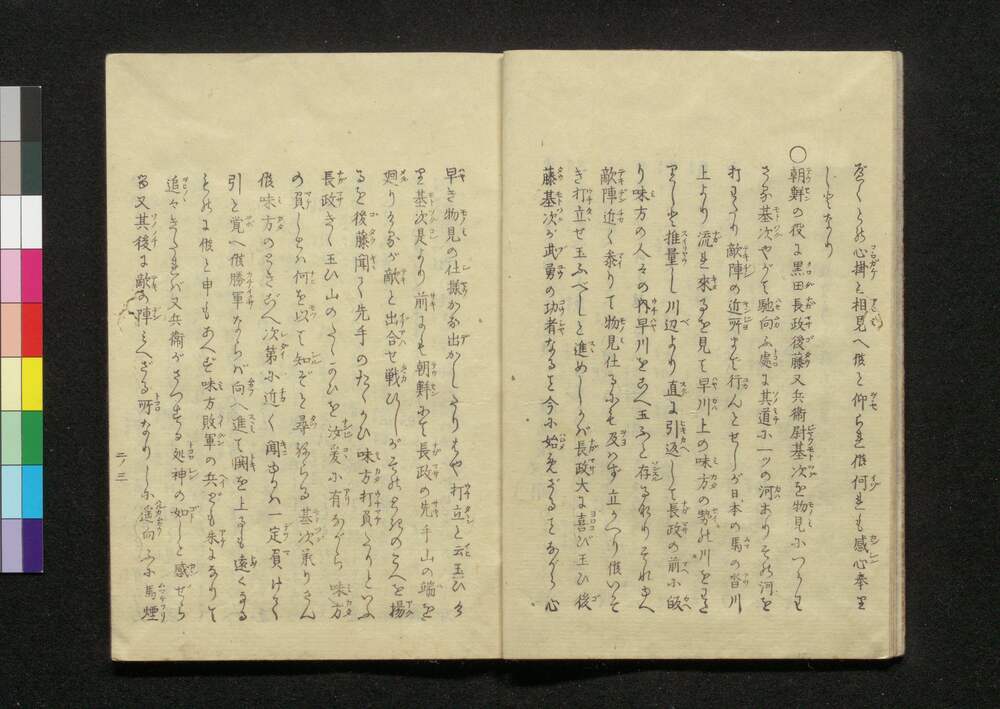 なりとの心掛と相見へ候と仰られ候何れも感心奉り
しとなり
○朝鮮の役に黒田長政後藤又兵衛尉基次を物見につかはす
さる基次やがて馳向ふ處に其道に一ツの河ありその河を
打わたり敵陣の近所まで行んとせしが日本の馬の沓川
上より流れ来るを見て早川上の味方の勢の川をわたり
しと推量し川辺より直に引返して長政の前に皈
り味方の人々の内早川をこへ玉ふと存るなりそれゆへ
敵陣近く参りて物見仕るにも及はず立かへり候いそ
ぎ打立せ玉ふべしと進めしかば長政大に喜び玉ひ後
藤基次が武勇の功者なるを今に始めざるとながら心
早き物見の仕様かな出かしたりはや打立と云玉ひ
基次是より前にも朝鮮にて長政の先手山の端を
廻りけるが敵と出合せ戦ひしがその時のこへを揚
るを後藤聞て先手のたゝかひ味方打負たりといふ
長政きゝ玉ひ山のあなたのことを汝爰に有ながら味方
の負しとは何を以て知ぞと尋らる基次承りさん
候味方のときのこへ次第に近く聞ゆるは一定負けて
引と覚へ候勝軍ならば向へ進て鬨を上るも遠くなる
ものに候と申もあへず味方敗軍の兵ども朱になりて
追々きたれば又兵衛がさつする処神の如しと感ぜら
る又其後に敵の陣みへざる所なりしに遥向ふに馬煙
二ノ三